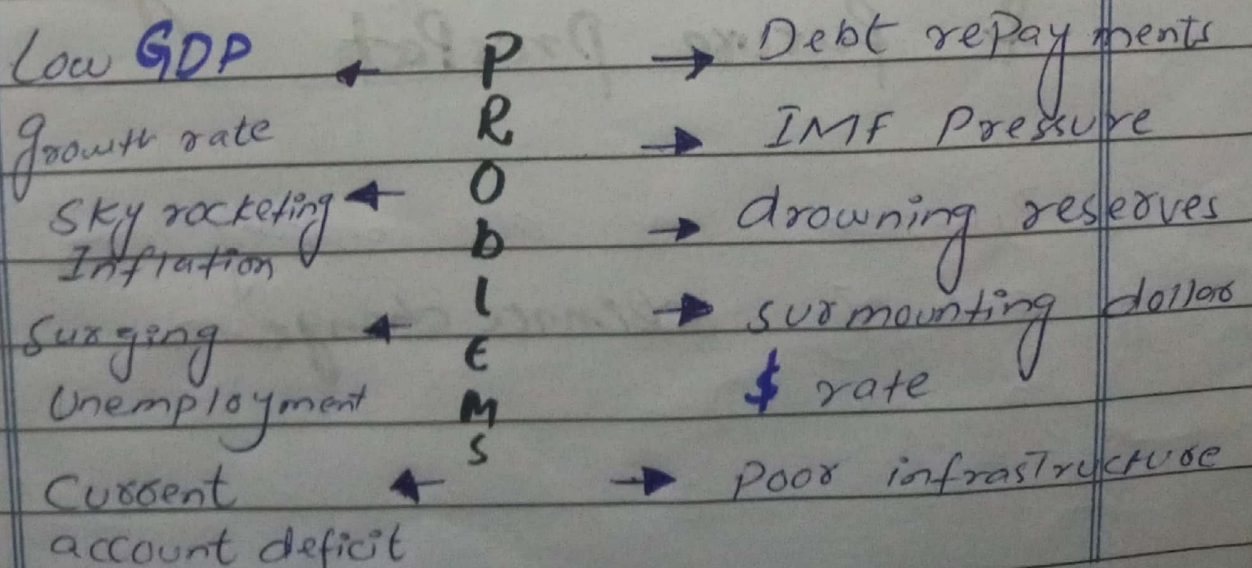 Low GDP
growth rate
Sky rocketing
Inflation
Surging
Unemployment
Current
account deficit
PROblEMS
Debt rePayments
IMF Pressure
drowning reserves
surmounting dollar
$ rate
Poor infrastructure